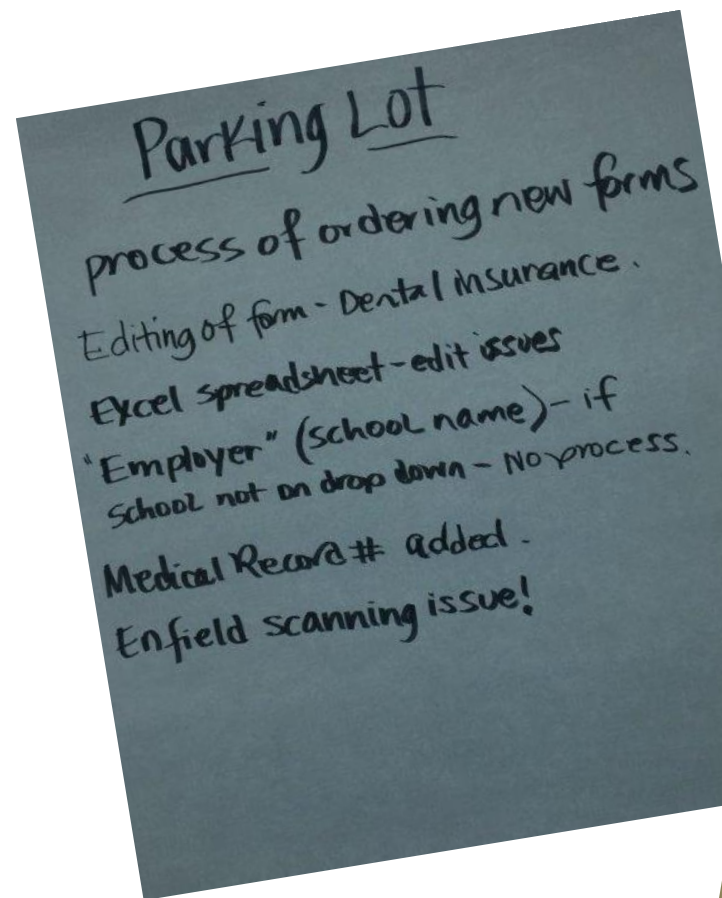 Parking Lot
process of ordering new forms
Editing of form - Dental insurance.
Excel spreadsheet - edit issues
"Employer" (school name) - if
School not on drop down - No process.
Medical Record # added.
Enfield scanning issue!